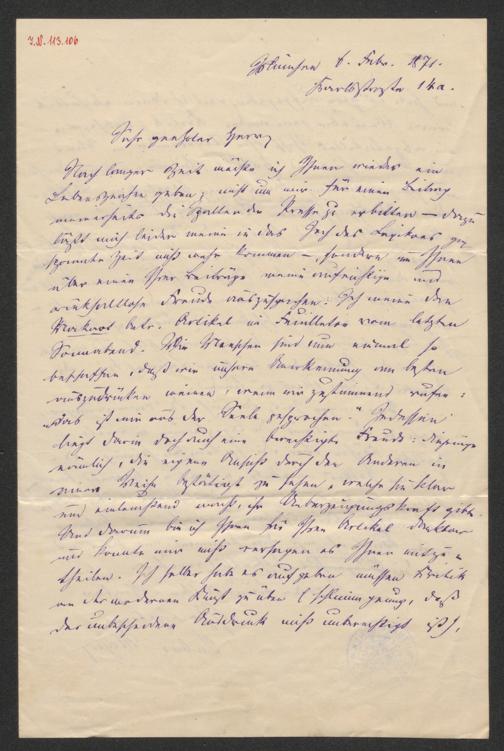 J.N. 113.106
München 6. Febr. 1871.
Karlsstraße 14a.
Sehr geehrter Herr,
Nach langer Zeit möchte ich Ihnen wieder ein
Lebenszeichen geben, nicht um nur für einen Beitrag
meinerseits die Spalten der Presse zu erbitten – dazu
läßt mich leider meine in das Joch des Lexikons ge
spannte Zeit nicht mehr kommen –, sondern um Ihnen
über einen Ihrer Beiträge meine aufrichtige und
rückhaltlose Freude auszusprechen: Ich meine den
Makart betr. Artikel im Feuilleton vom letzten
Sonnabend. Wir Menschen sind nun einmal so
beschaffen, daß wir unsere Anerkennung am besten
auszudrücken meinen, wenn wir zustimmend rufen:
„das ist mir aus der Seele gesprochen." Indessen
liegt darin doch auch eine berechtigte Freude: diejenige
nämlich, die eigene Ansicht durch den Anderen in
einer Weise bestätigt zu sehen, welche sie klar
und einleuchtend macht, ihr Ueberzeugungskraft gibt.
Und darum bin ich Ihnen für Ihren Artikel dankbar
und konnte mir nicht versagen es Ihnen mitzu-
theilen. Ich selber habe es aufgeben müssen Kritik
an der modernen Kunst zu üben (schlimm genug, daß
der unbescheidene Ausdruck nicht unberechtigt ist),